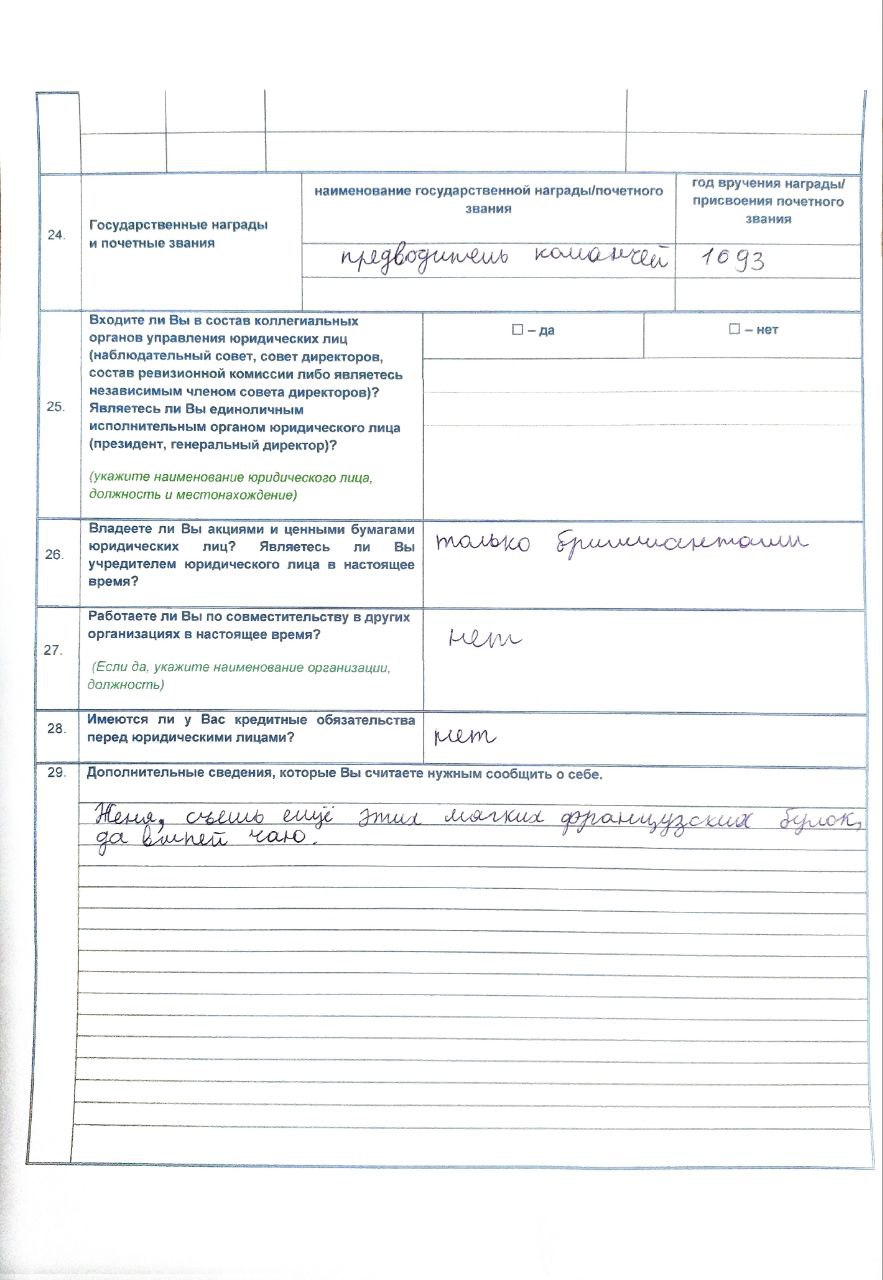 наименование государственной награды/почетного
звания
год вручения награды/
присвоения почетного
звания
24.
Государственные награды
и почетные звания
предводитель команчей
1693
25.
Входите ли Вы в состав коллегиальных
органов управления юридических лиц
(наблюдательный совет, совет директоров,
состав ревизионной комиссии либо являетесь
независимым членом совета директоров)?
Являетесь ли Вы единоличным
исполнительным органом юридического лица
(президент, генеральный директор)?
(укажите наименование юридического лица,
должность и местонахождение)
☐ – да
☐ – нет
26.
Владеете ли Вы акциями и ценными бумагами
юридических лиц? Являетесь ли Вы
учредителем юридического лица в настоящее
время?
только бриллиантами
27.
Работаете ли Вы по совместительству в других
организациях в настоящее время?
(Если да, укажите наименование организации,
должность)
нет
28.
Имеются ли у Вас кредитные обязательства
перед юридическими лицами?
нет
29.
Дополнительные сведения, которые Вы считаете нужным сообщить о себе.
Женя, съешь ещё этих мягких французских булок,
да выпей чаю.